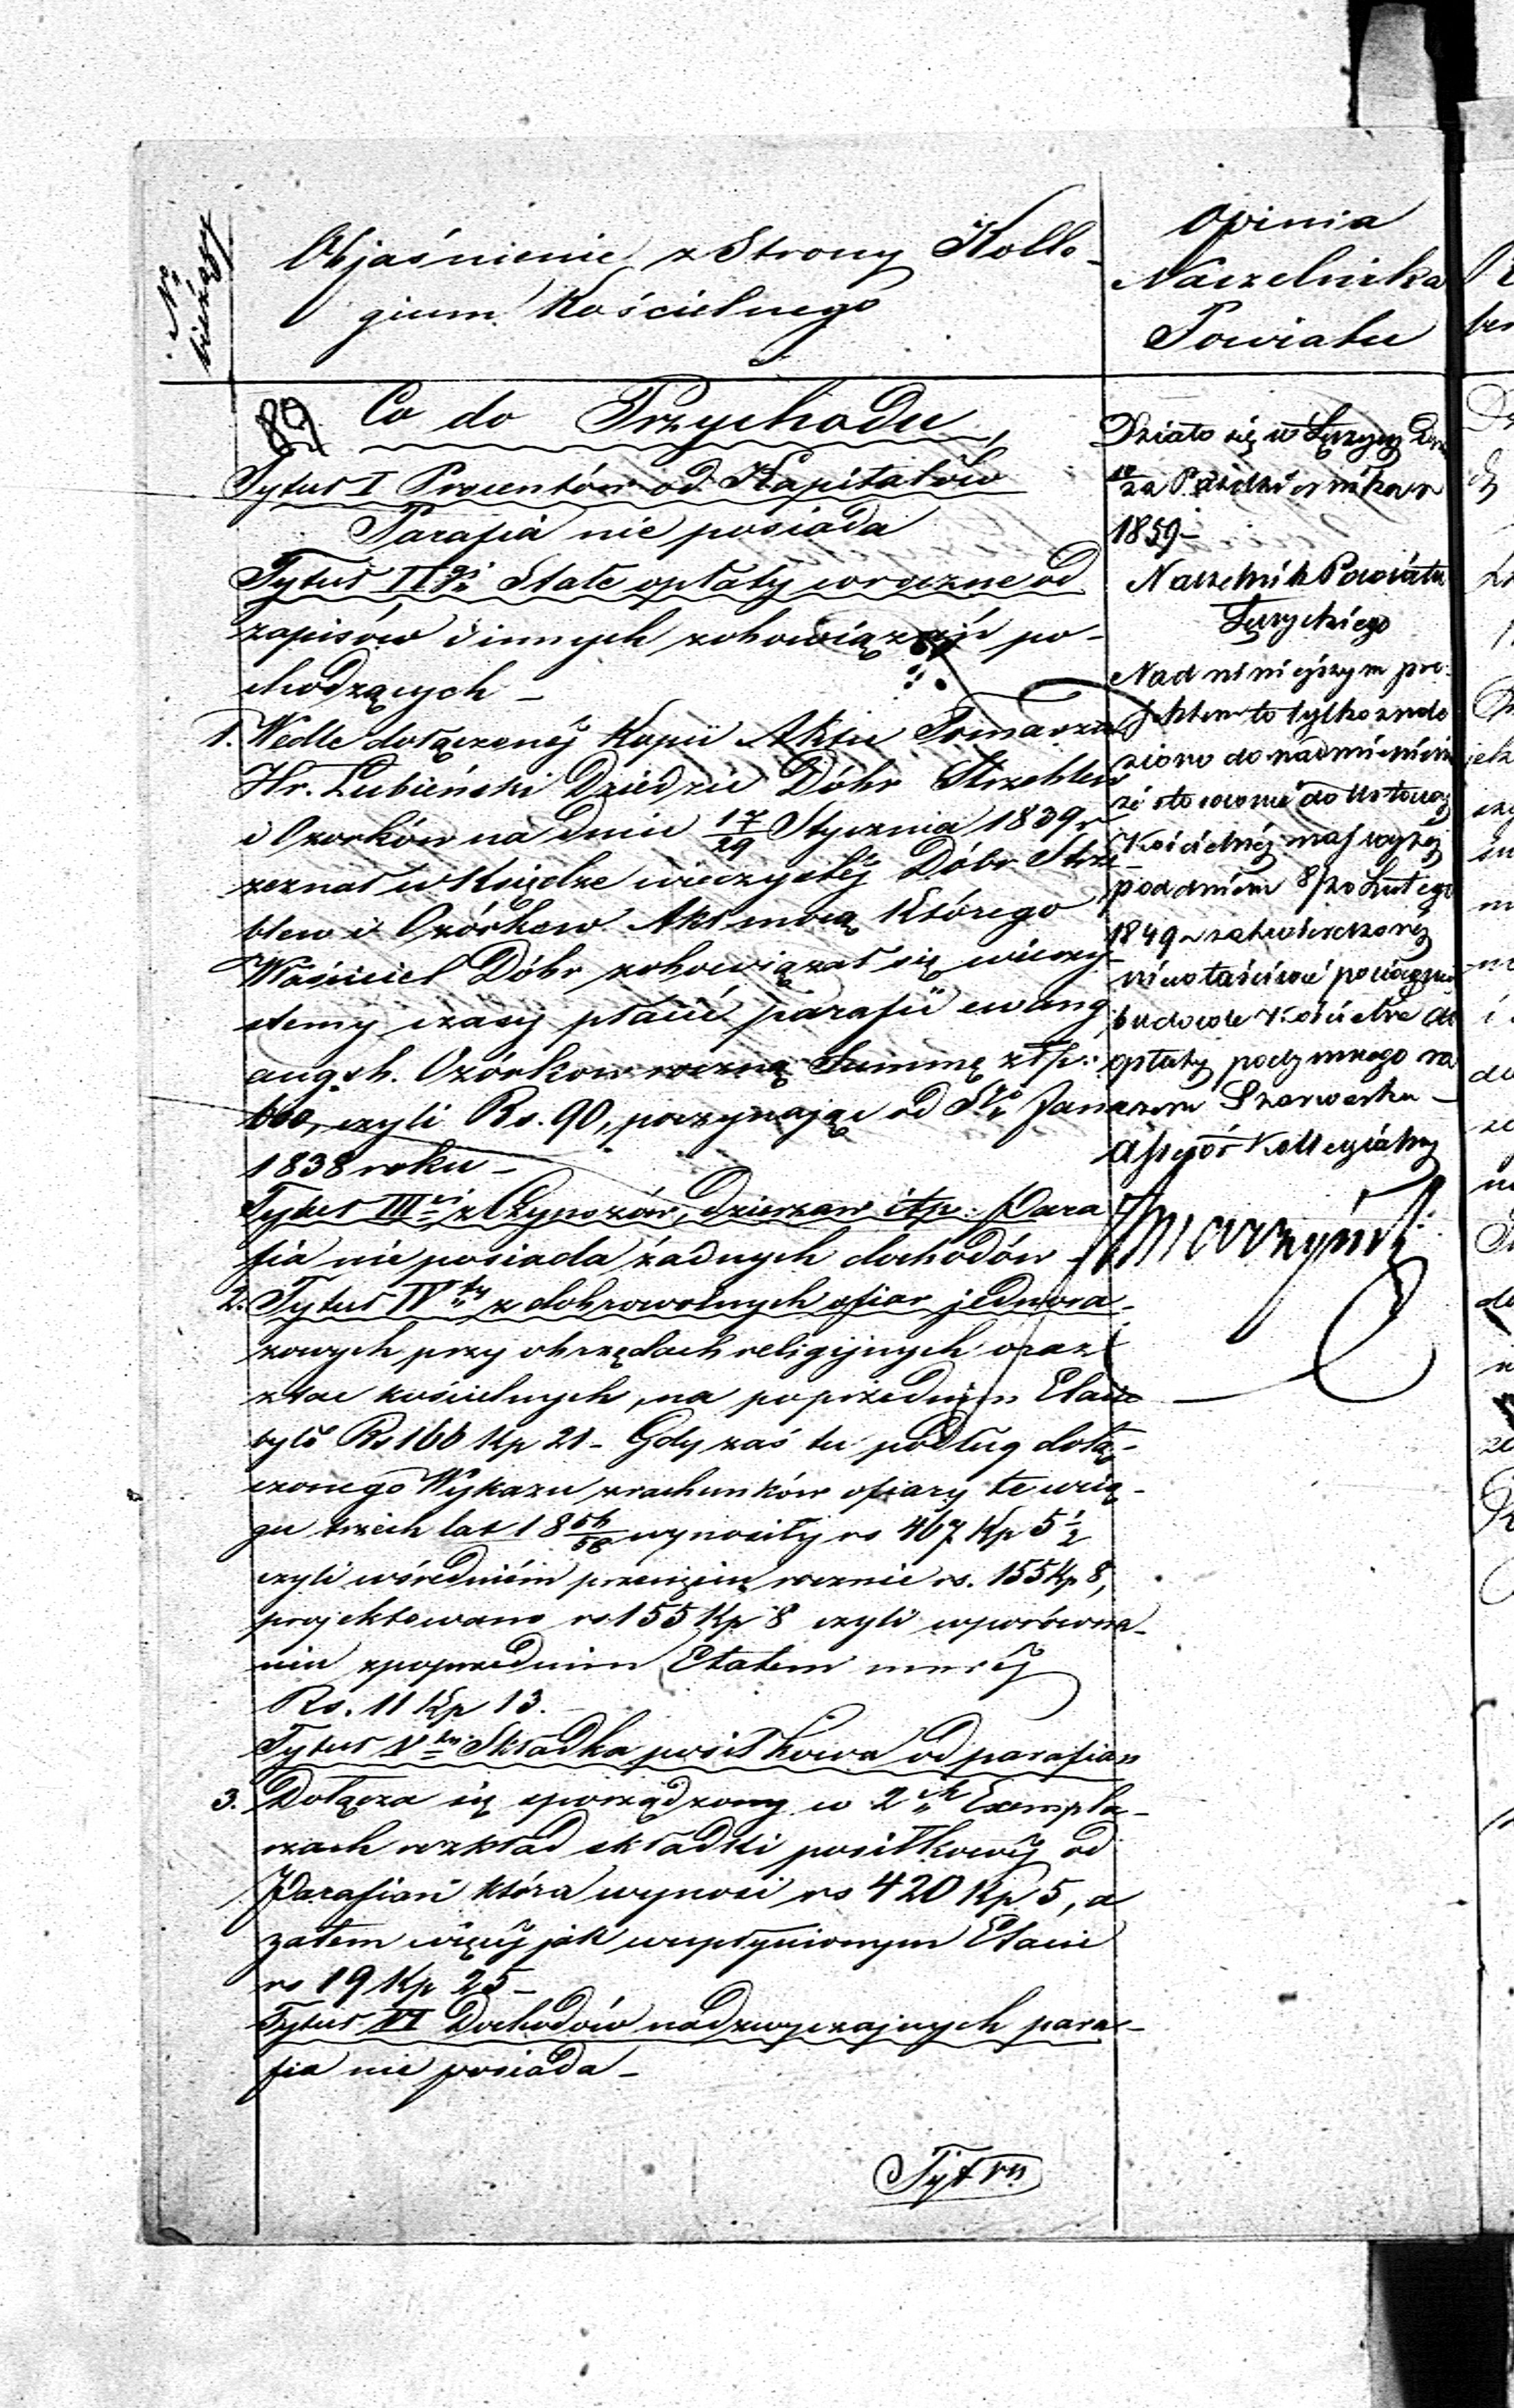 Nro
bieżący
Objaśnienie z Strony Kolle-
gium Kościelnego
Opinia
Naczelnika
Powiatu
89 Co do Przychodu,
Tytuł I Procentów od Kapitałów
Parafia nie posiada
Tytuł IIgi Stałe opłaty wroczne od
zapisów i innych zobowiązań po-
chodzących –
1. Wedle dołączonéj Kopii Aktu Tomasza
Hr. Łubieński Dziedzic Dóbr Strzeblew
i Ozorków na dniu 17/29 Stycznia 1839 r
zeznał w Księdze wieczystéj Dóbr Strze-
blew i Ozórkow Akt mocą Którego
Właściciel Dóbr zobowiązał się wieczy-
stemy czasy płacić parafii ewang
augsb. Ozórkow roczną Summę złp:
600, czyli Rs. 90, poczynając od Sgo Jana
1838 roku –
Tytuł IIIci z Czynszów, dzierzaw itp: Para
fia nie posiada żadnych dochodów –
2. Tytuł IVty z dobrowolnych ofiar jednora-
zowych przy obrzędach religijnych oraz
z tac kościelnych, na poprzednim Etacie
było Rs 166 Kp 21 – Gdy zaś tu podług dołą-
czonego Wykazu z rachunków ofiary te wcią-
gu trzech lat 18 56/58 wynosiły rs 467 Kp 5 1/2
czyli wśredniém przecięciu rocznie rs. 155 Kp 8,
projektowano rs 155 Kp 8 czyli wporówna-
niu zpoprzednim Etatem mniéj
Rs. 11 Kp 13.
Tytuł Vty Składka posiłkowa od parafian
3. Dołącza się sporządzony w 2ch Exempla-
rzach rozkład składki posiłkowéj od
Parafian która wynosi rs 420 Kp 5, a
zatem więcéj jak wupłynionym Etacie
rs 19 Kp 25 –
Tytuł VI Dochodów nadzwyczajnych para-
fia nie posiada –
Tyt VII
Działo się w Łęczycy dnia
Października
1859 –
Naczelnik Powiatu
Łęczyckiego
Nad niniejszym pro-
jektem to tylko znale
ziono do nadmienienia
że stosownie do Ustawy
Kościelnéj najwyżéj
pod dniem 8/20 Lutego
1849 r zatwierdzonéj
niewłaściwe pociągnie
budowle Kościelne do
opłaty podymnego ra
zem Szarwarku –
Assesór Kollegialny